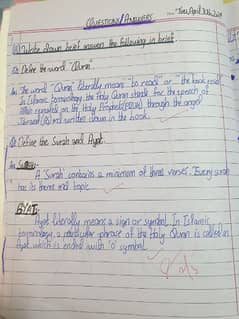 QUESTION/ANSWERS
Q: Write down brief answers the following in brief.
Q: Define the word "Quran".
Ans: The word "Quran" literally means "to read" or "the book read".
In Islamic terminology, the Holy Quran stands for the speech of
Allah revealed on the Holy Prophet (PBUH) through the angel
and written down in the book.
Q: Define the Surah and Ayat.
Ans: Surah:
A Surah contains a minimum of three verses. Every surah
has its theme and topic.
AYAT:
Ayat literally means a sign or symbol. In Islamic
terminology, a particular phrase of the Holy Quran is called an
Ayat which is ended with "o" symbol.